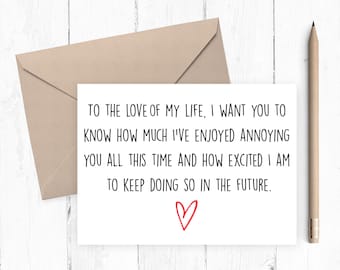 TO THE LOVE OF MY LIFE, I WANT YOU TO
KNOW HOW MUCH I'VE ENJOYED ANNOYING
YOU ALL THIS TIME AND HOW EXCITED I AM
TO KEEP DOING SO IN THE FUTURE.